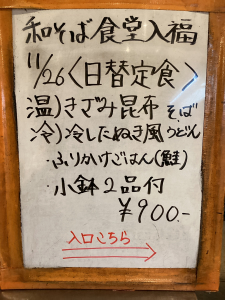 和そば食堂入福
11/26〈日替定食〉
温)きざみ昆布そば
冷)冷したぬき風うどん
・ふりかけごはん(鮭)
・小鉢2品付
¥900.-
入口こちら